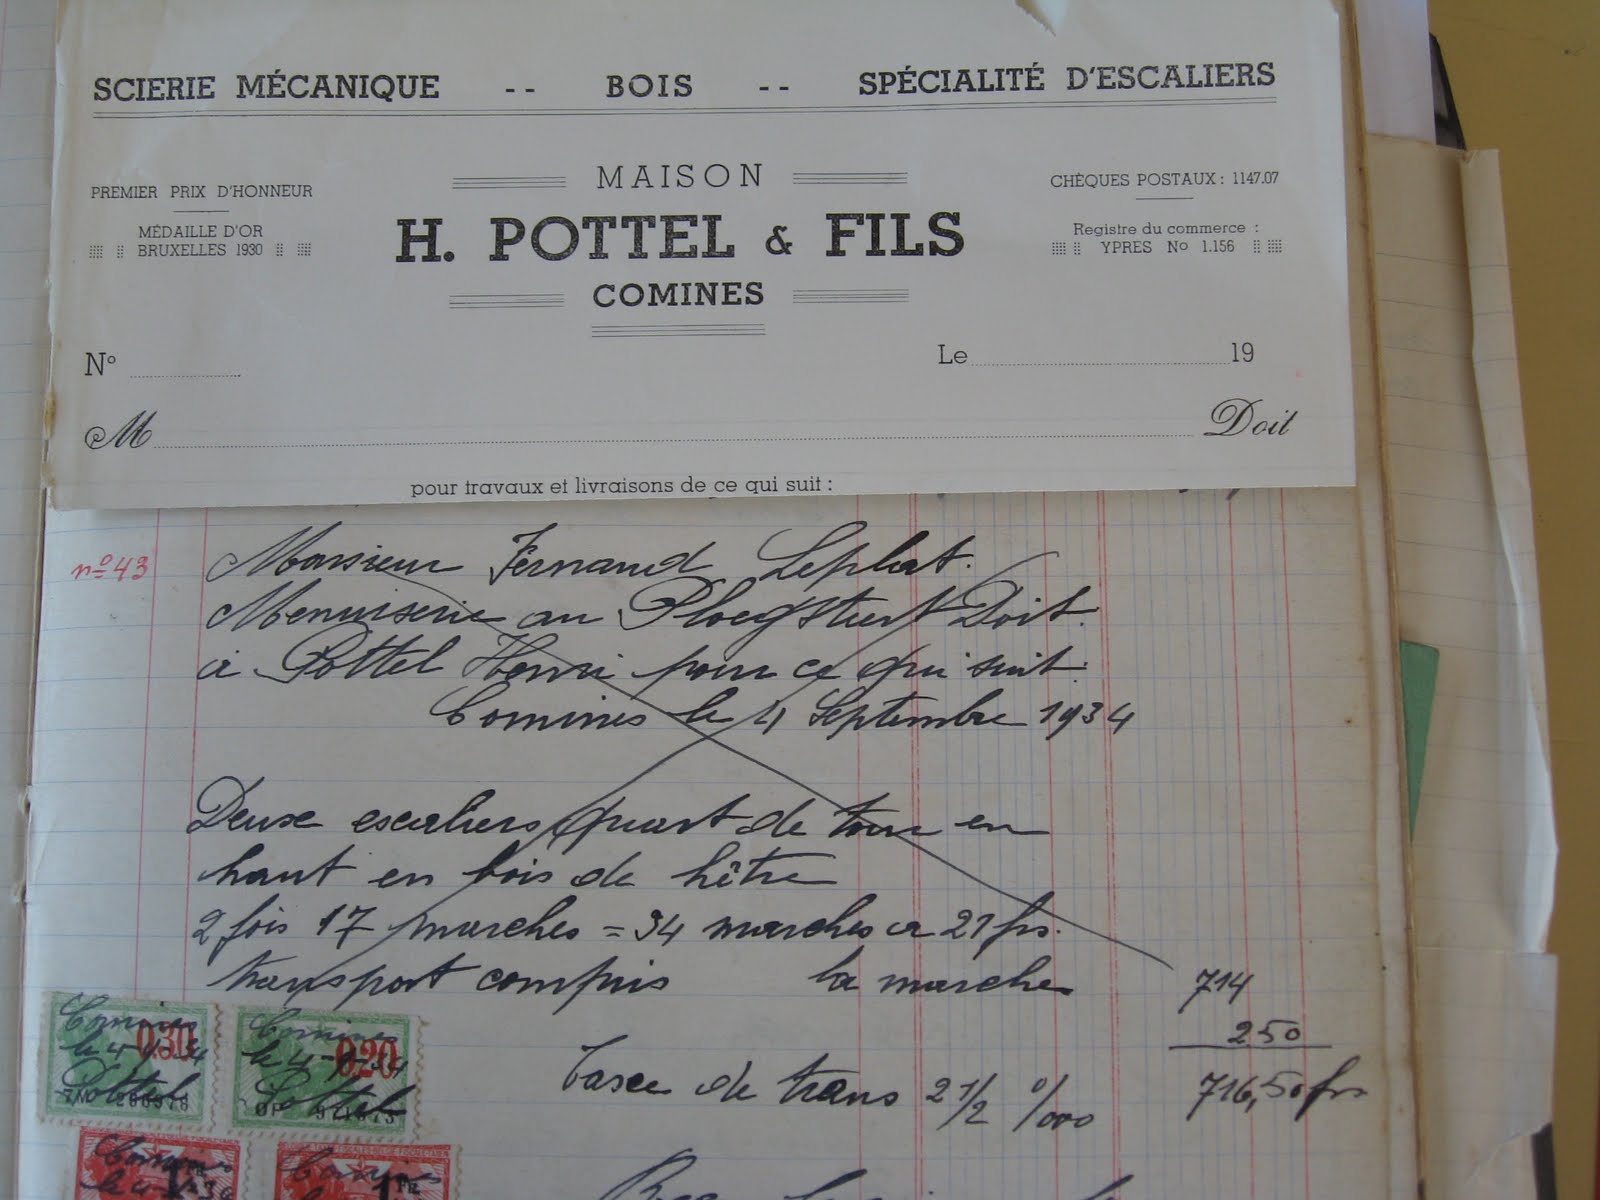 SCIERIE MÉCANIQUE -- BOIS -- SPÉCIALITÉ D'ESCALIERS
PREMIER PRIX D'HONNEUR
MÉDAILLE D'OR
BRUXELLES 1930
MAISON
H. POTTEL & FILS
COMINES
CHÈQUES POSTAUX : 1147.07
Registre du commerce :
YPRES No 1.156
No
Le 19
M Doit
pour travaux et livraisons de ce qui suit :
no 43
Monsieur Fernand Leplat.
Menuiserie au Ploegsteert Doit.
à Pottel Henri pour ce qui suit:
Comines le 4 Septembre 1934
Deux escaliers quart de tour en
haut en bois de hêtre
2 fois 17 marches = 34 marches a 21 frs.
transport compris la marche 714
2 50
Taxe de trans 2 1/2 %00 716,50 frs
Comines
le 4-9-34
0.30
Pottel
Comines
le 4-9-34
0.20
Pottel
Comines
1 FR